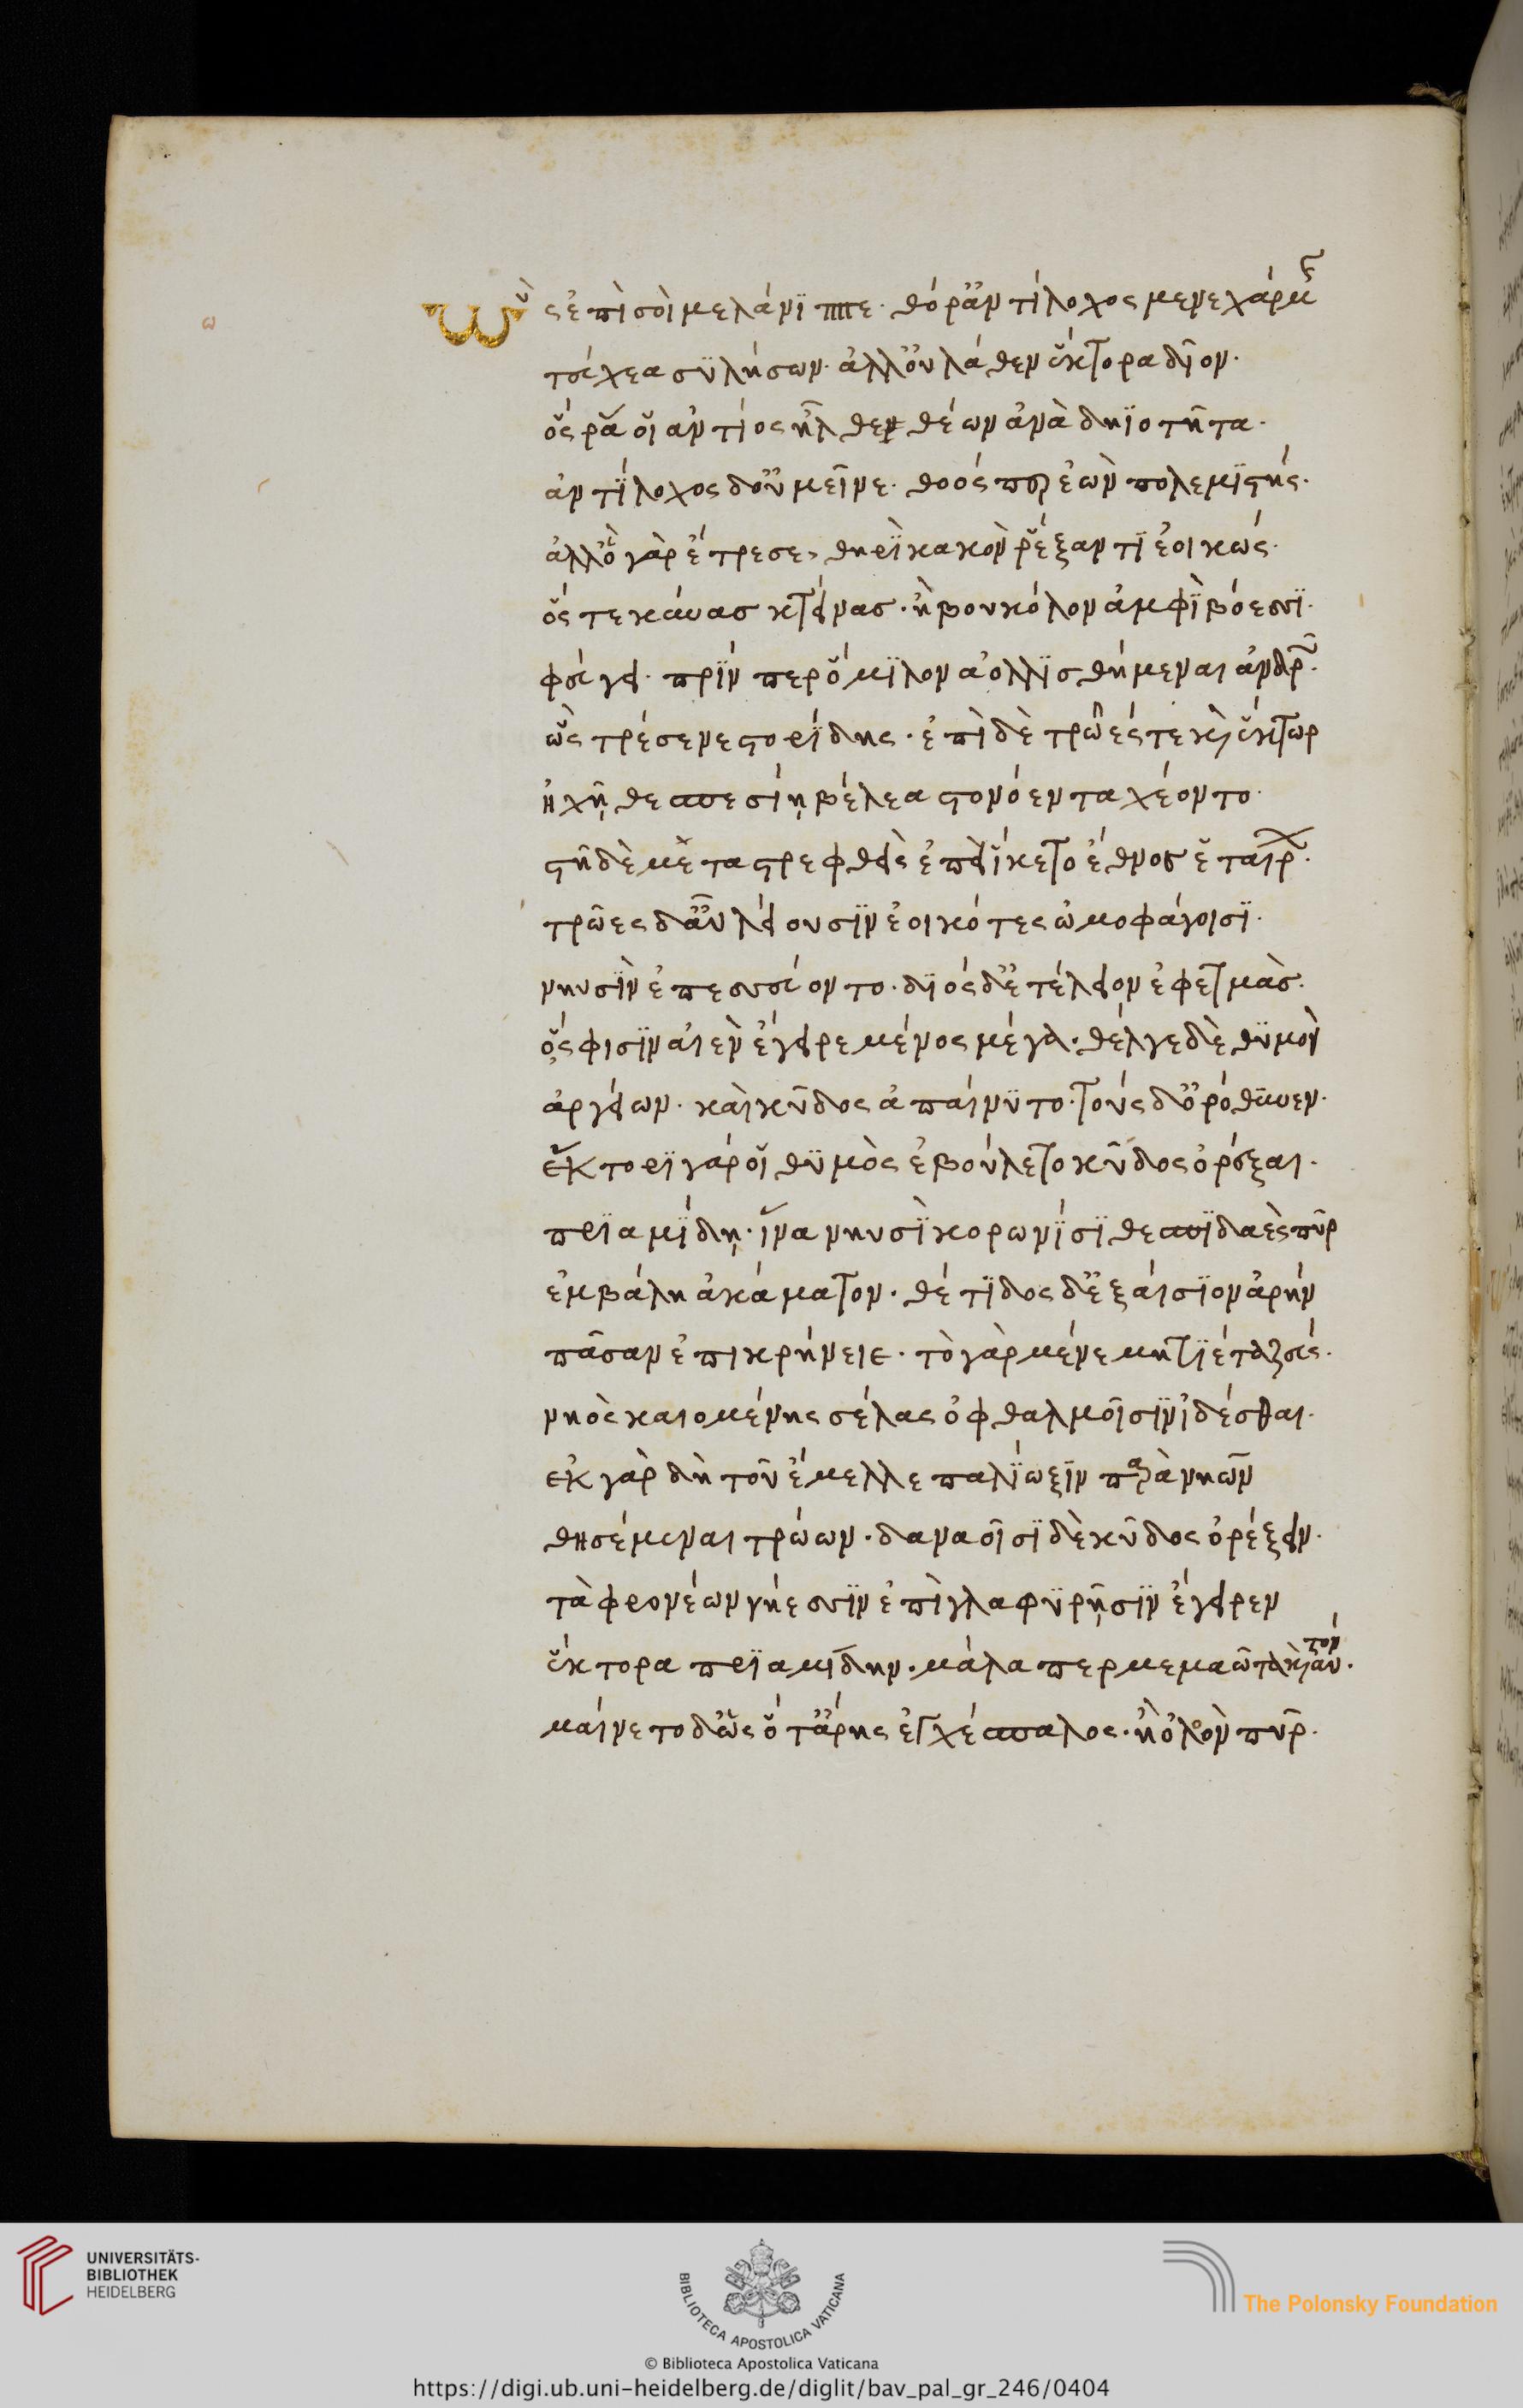 ὣς ἐπὶ σοὶ μελάνϊππε· θόρ' ἀντίλοχος μενεχάρμης
τεύχεα συλήσων· ἀλλ' οὐ λάθεν ἕκτορα δῖον·
ὅς ῥά οἱ ἀντίος ἦλθεν θέων ἀνὰ δηϊοτῆτα·
ἀντίλοχος δ' οὐ μεῖνε· θοός περ ἐὼν πολεμιστής·
ἀλλ' ὅ γὰρ ἔτρεσε, θηρὶ κακὸν ῥέξαντι ἐοικώς·
ὅς τε κύνας κτείνας· ἢ βουκόλον ἀμφὶ βόεσσι·
φεύγει· πρίν περ ὅμιλον ἀολλισθήμεναι ἀνδρῶν·
ὣς τρέσε νεστορίδης· ἐπὶ δὲ τρῶές τε καὶ ἕκτωρ
ἠχῇ θεσπεσίῃ βέλεα στονόεντα χέοντο·
στῆ δὲ μεταστρεφθεὶς ἐπεὶ ἵκετο ἔθνος ἑταίρων·
τρῶες δ' αὖ λείουσιν ἐοικότες ὠμοφάγοισι·
νηυσὶν ἐπεσσεύοντο· διός δ' ἐτέλειον ἐφετμάς·
ὅς φισιν αἰὲν ἔγειρε μένος μέγα· θέλγε δὲ θυμὸν
ἀργείων· καὶ κῦδος ἀπαίνυτο· τοὺς δ' ὀρόθυνεν·
ἕκτορι γάρ οἱ θυμὸς ἐβούλετο κῦδος ὀρέξαι·
πριαμίδῃ· ἵνα νηυσὶ κορωνίσι θεσπιδαὲς πῦρ
ἐμβάλη ἀκάματον· θέτιδος δ' ἐξαίσιον ἀρὴν
πᾶσαν ἐπικρήνειε· τὸ γὰρ μένε μητίετα ζεύς·
νηὸς καιομένης σέλας ὀφθαλμοῖσιν ἰδέσθαι·
ἐκ γὰρ δὴ τοῦ ἔμελλε παλίωξιν παρὰ νηῶν
θησέμεναι τρώων· δαναοῖσι δὲ κῦδος ὀρέξειν·
τὰ φρονέων νήεσσιν ἐπὶ γλαφυρῇσιν ἔγειρεν
ἕκτορα πριαμίδην· μάλα περ μεμαῶτα καὶ αὐτόν·
μαίνετο δ' ὡς ὅτ' ἄρης ἐγχέσπαλος· ἢ ὀλοὸν πῦρ·
UNIVERSITÄTS-
BIBLIOTHEK
HEIDELBERG
BIBLIOTECA APOSTOLICA VATICANA
The Polonsky Foundation
© Biblioteca Apostolica Vaticana
https://digi.ub.uni-heidelberg.de/diglit/bav_pal_gr_246/0404